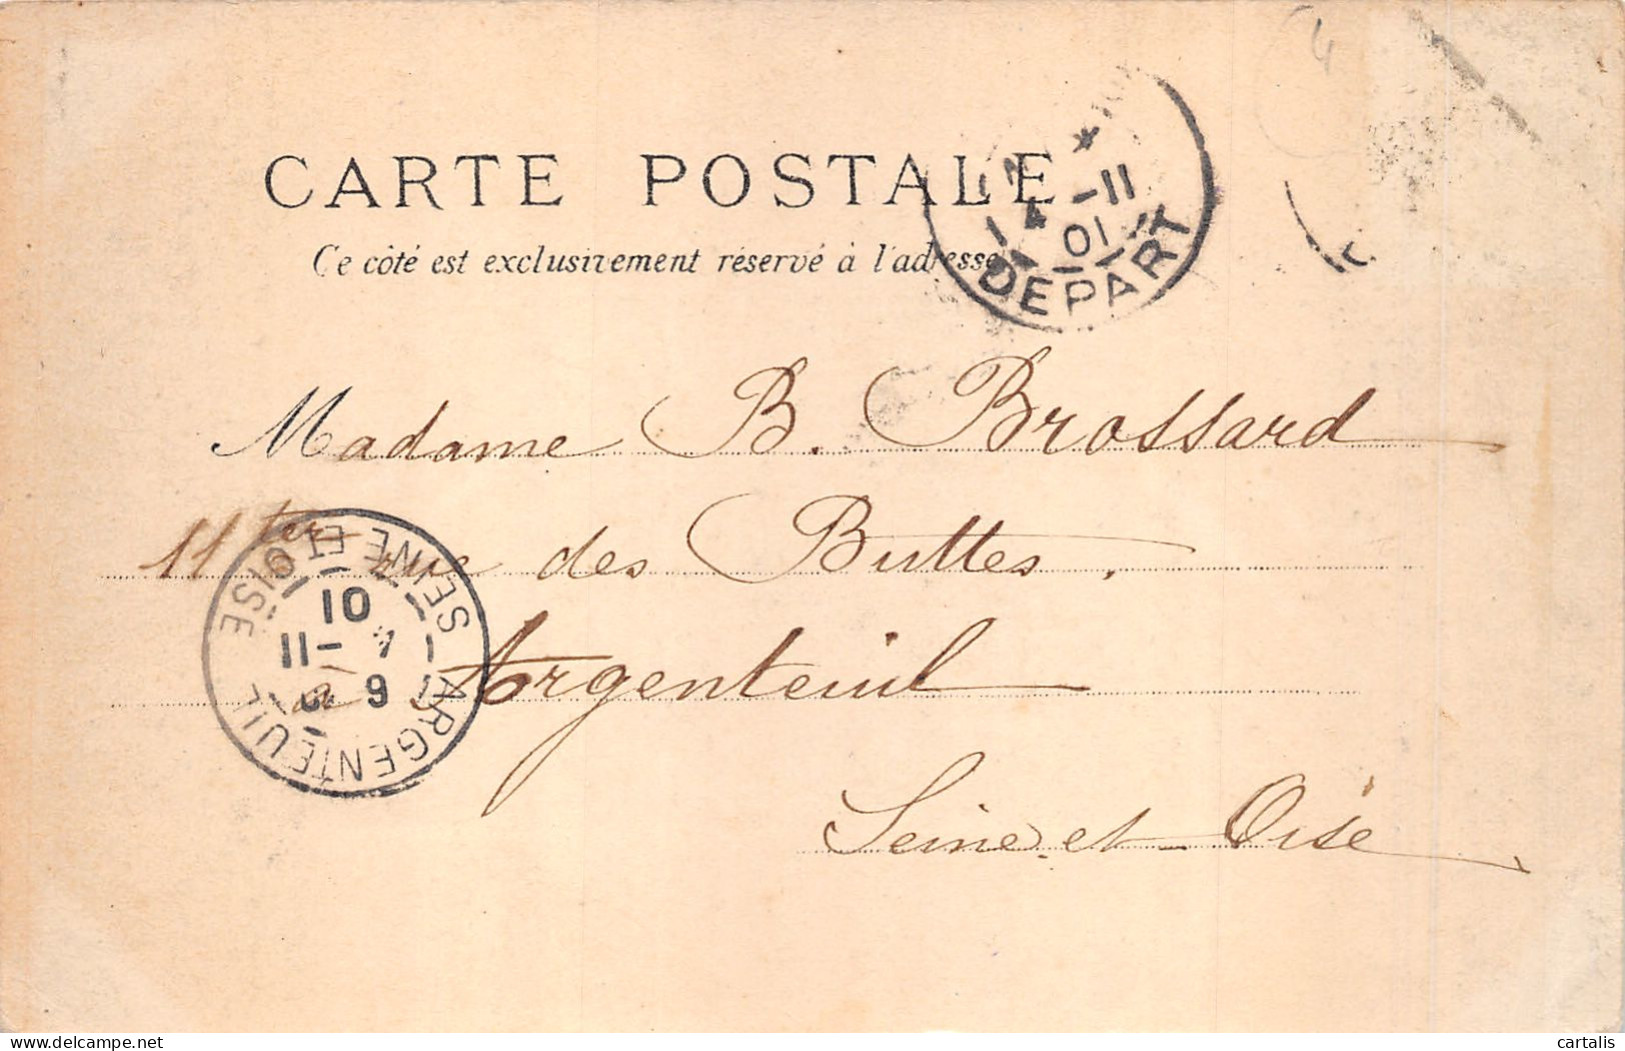 CARTE POSTALE
Ce côté est exclusivement réservé à l'adresse
4 -11
01
DEPART
Madame B. Brossard
11 ter rue des Buttes.
à Argenteuil
Seine-et-Oise
SEINE ET OISE
01
11-
ARGENTEUIL
4
www.delcampe.net
cartalis